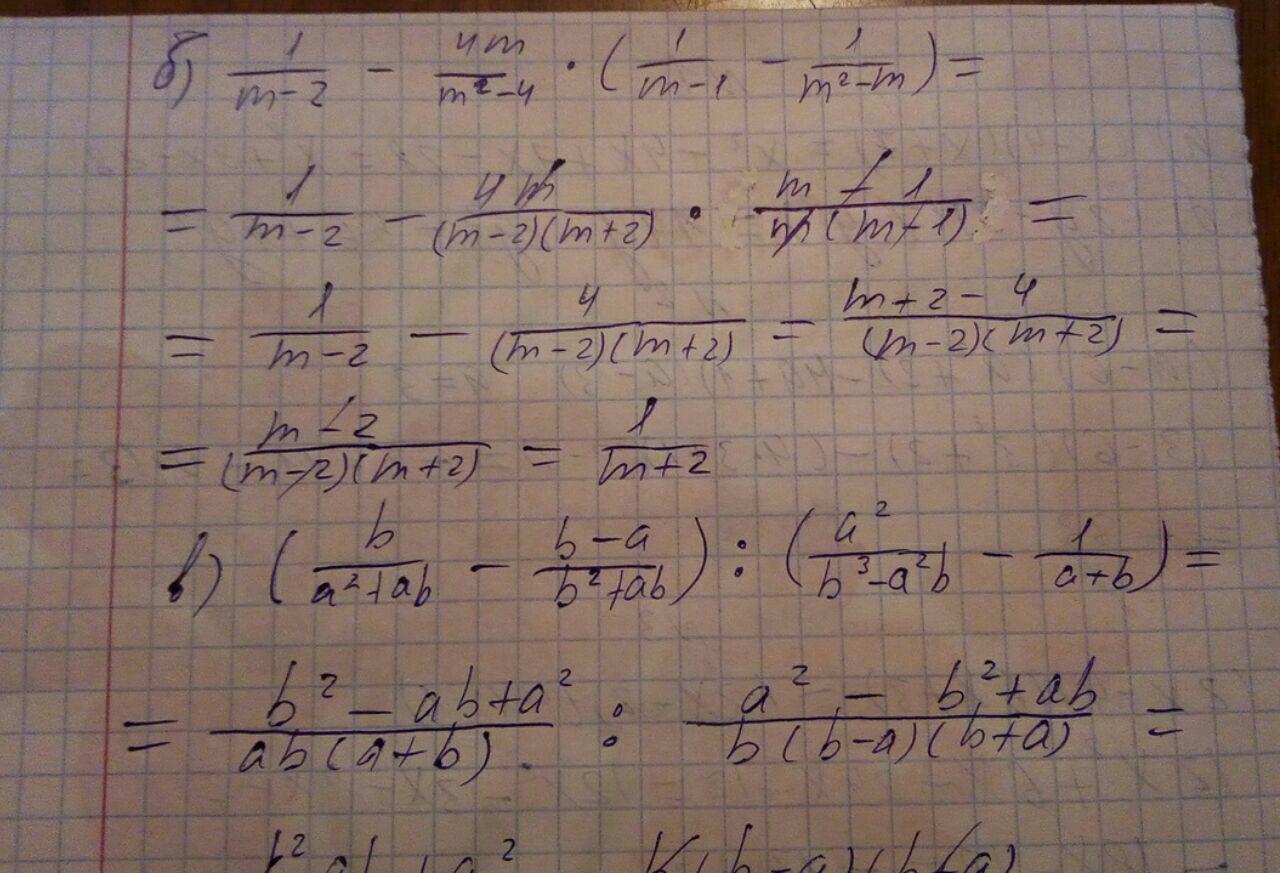 б) 1/(m-2) - 4m/(m²-4) · (1/(m-1) - 1/(m²-m)) =
= 1/(m-2) - 4m/((m-2)(m+2)) · (m-1)/(m(m-1)) =
= 1/(m-2) - 4/((m-2)(m+2)) = (m+2-4)/((m-2)(m+2)) =
= (m-2)/((m-2)(m+2)) = 1/(m+2)
в) (b/(a²+ab) - (b-a)/(b²+ab)) : (a²/(b³-a²b) - 1/(a+b)) =
= (b²-ab+a²)/(ab(a+b)) : (a²-b²+ab)/(b(b-a)(b+a)) =